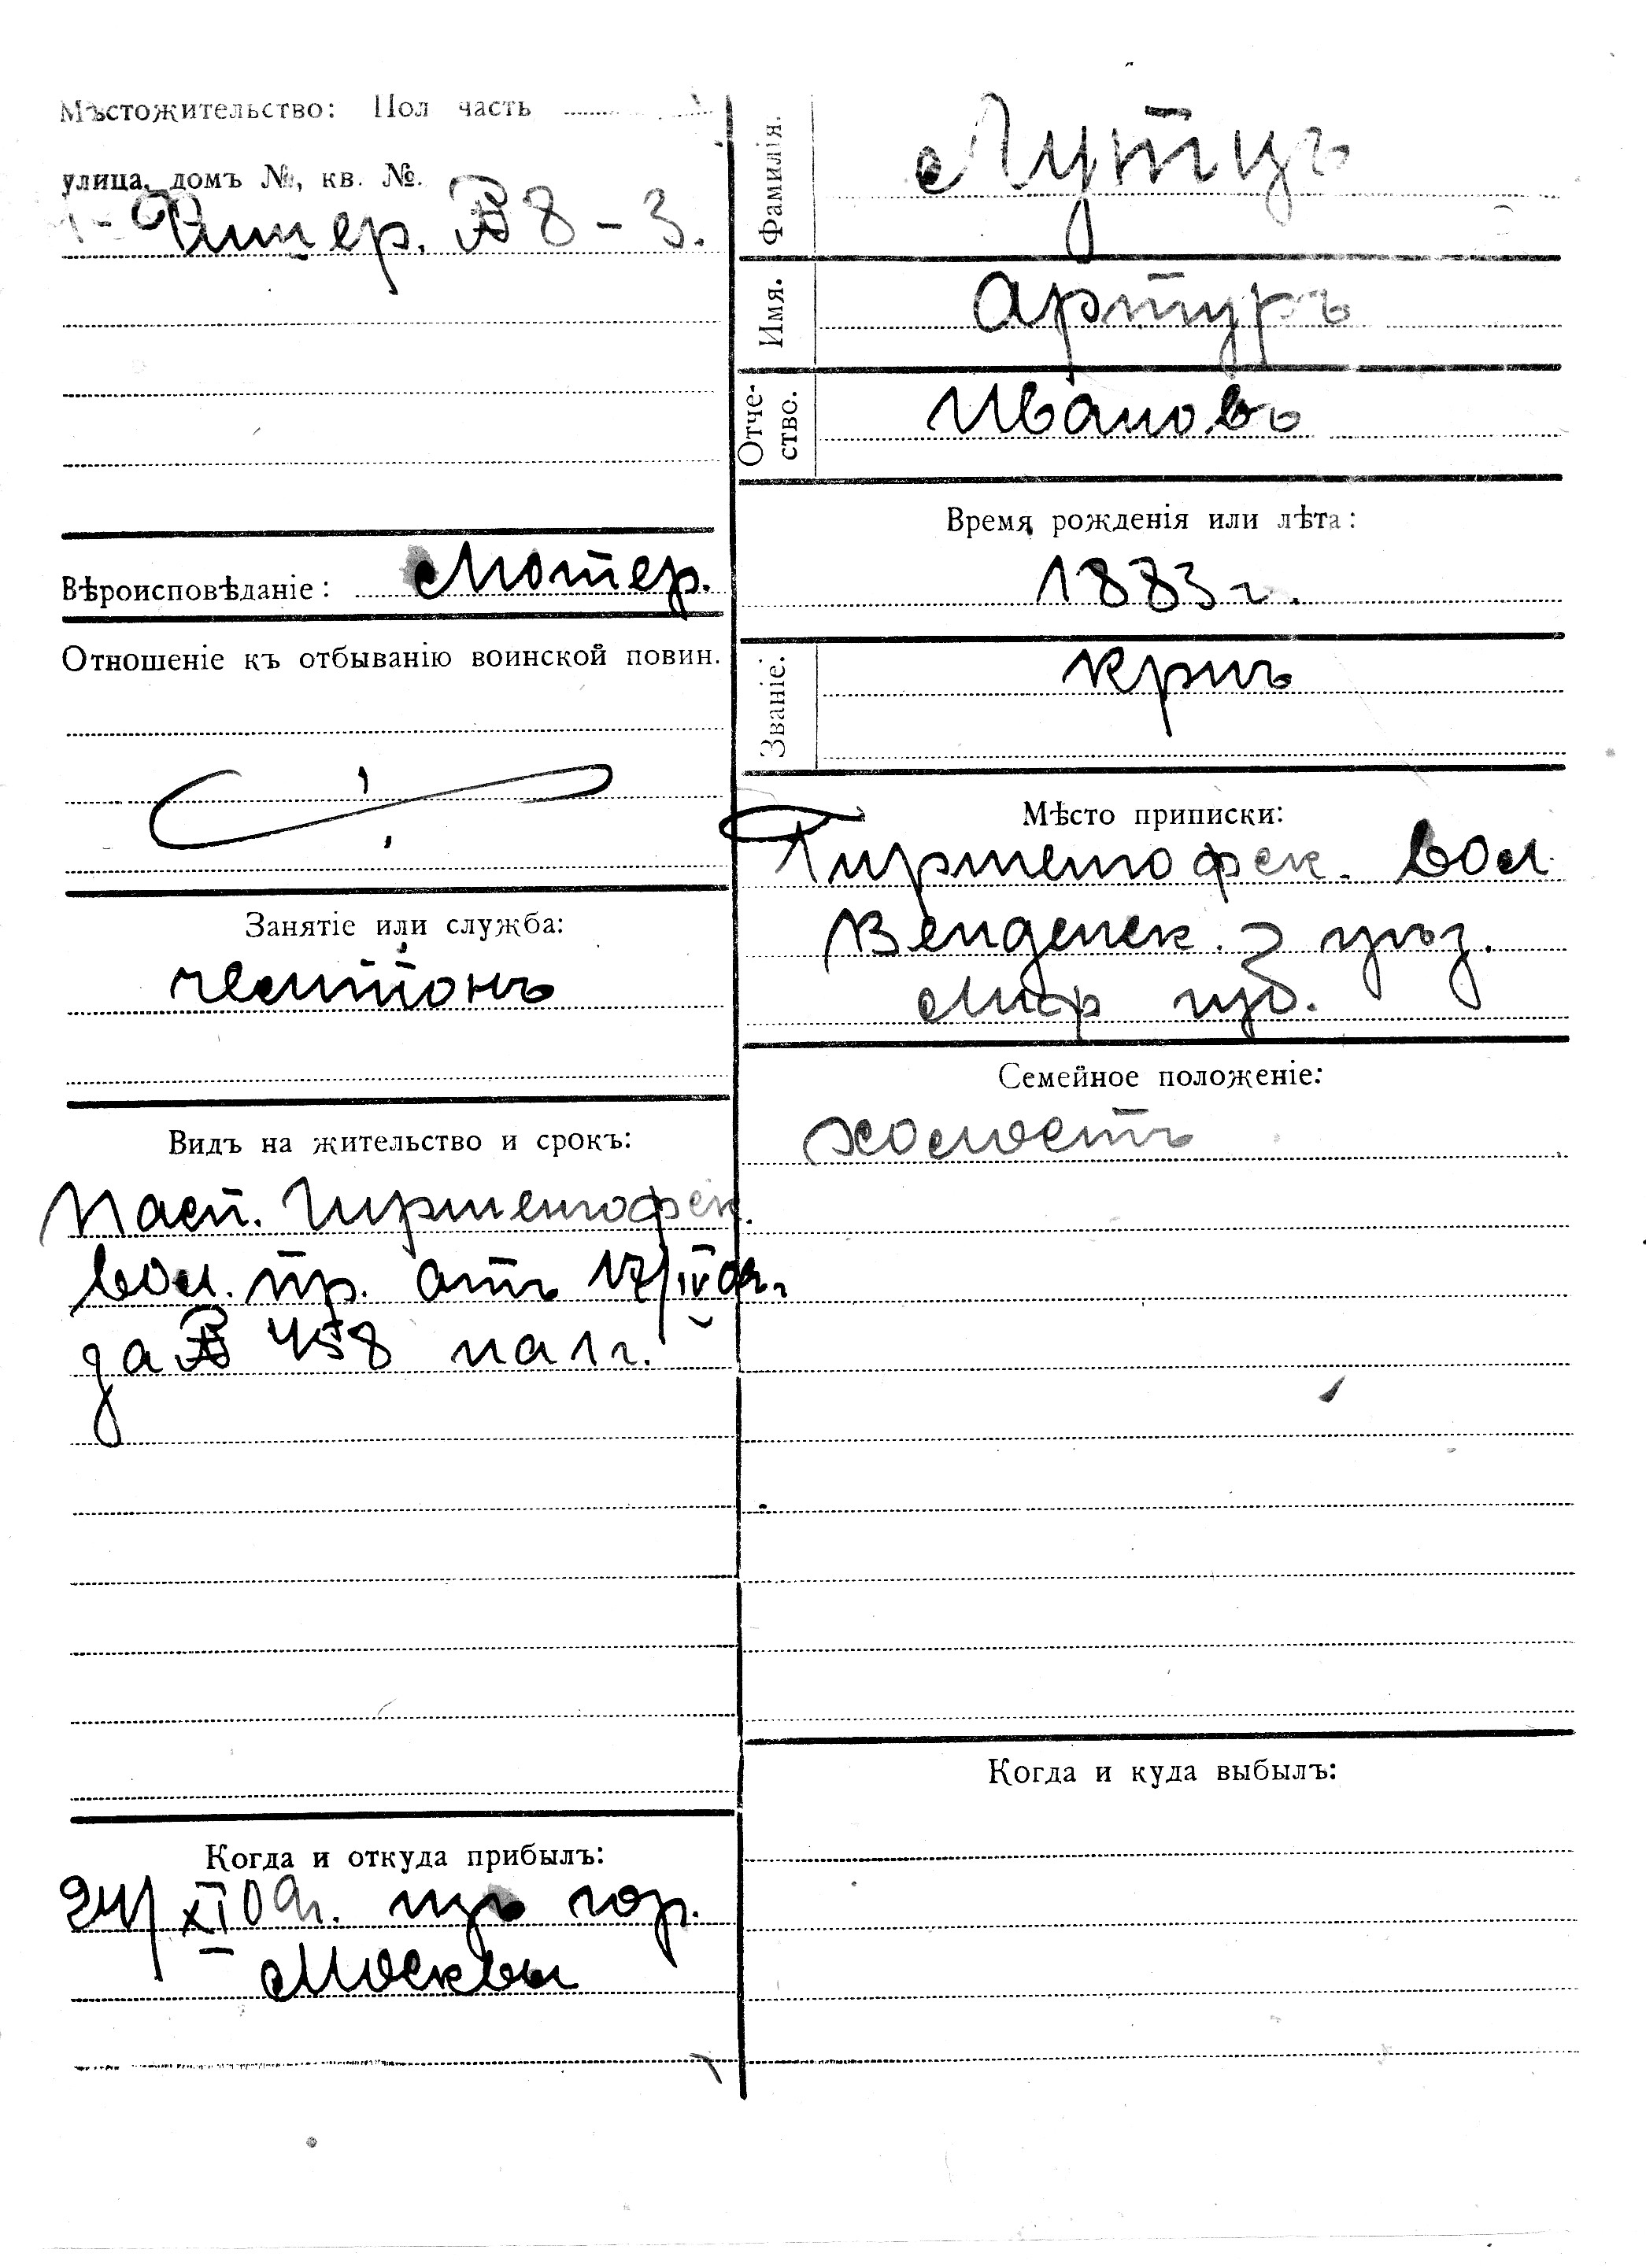 Мѣстожительство: Пол часть
улица, домъ №, кв. №.
№ 8 – 3.
Вѣроисповѣданіе: Лютер.
Отношеніе къ отбыванію воинской повин.
Занятіе или служба:
Видъ на жительство и срокъ:
Пасп. Гиршенгофск.
вол. пр. отъ 17/IV 09 г.
за № 458 на 1 г.
Когда и откуда прибылъ:
24/XI 09 г. изъ гор.
Москвы
Фамилія. Лутцъ
Имя. Артуръ
Отче-
ство. Ивановъ
Время рожденія или лѣта:
1883 г.
Званіе. крнъ
Мѣсто приписки:
Гиршенгофск. вол.
Венденск. уѣз.
Лиф губ.
Семейное положеніе:
холостъ
Когда и куда выбылъ: